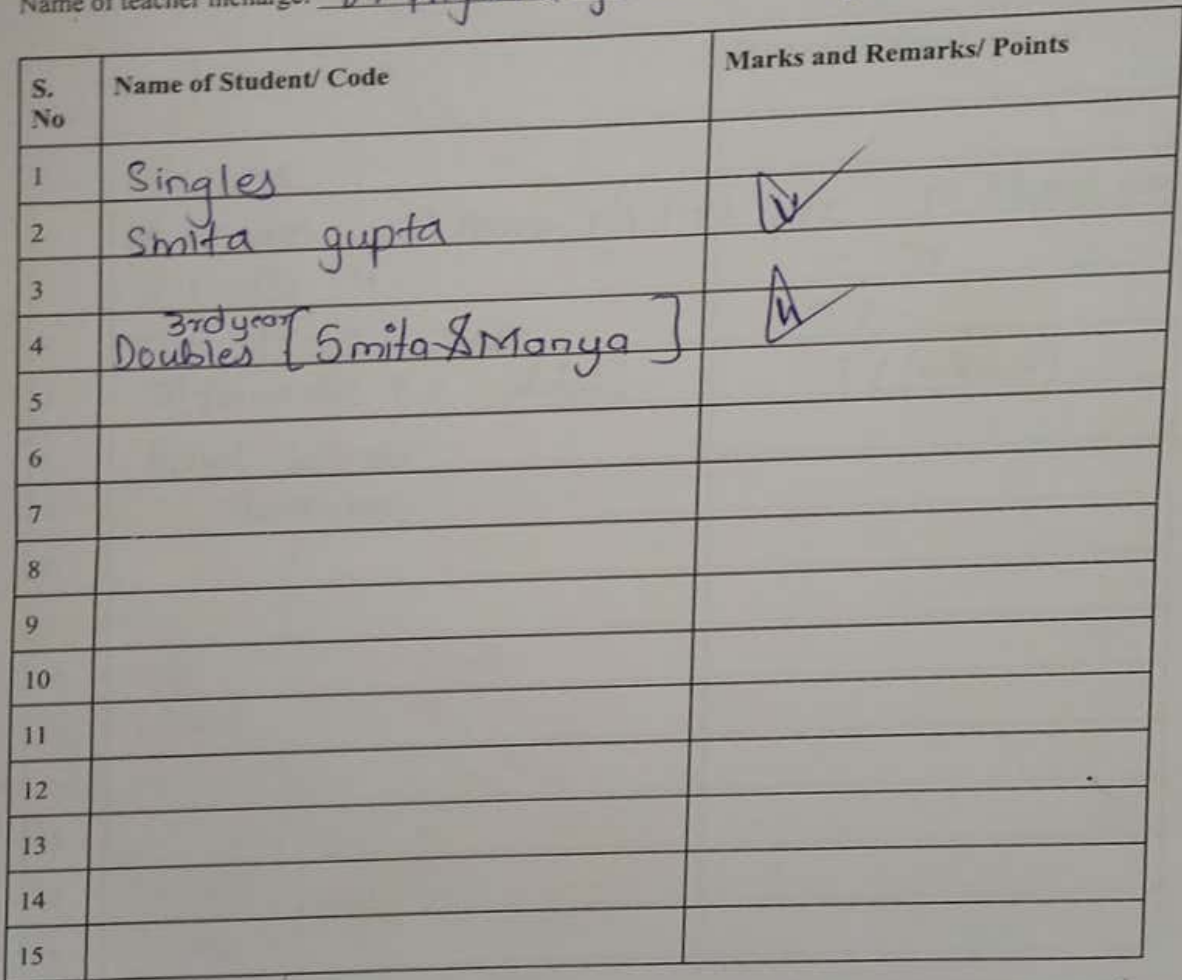 Name of teacher incharge:
S. No Name of Student/ Code Marks and Remarks/ Points
1 Singles
2 Smita gupta
3
3rd year
4 Doubles [Smita & Manya]
5
6
7
8
9
10
11
12
13
14
15